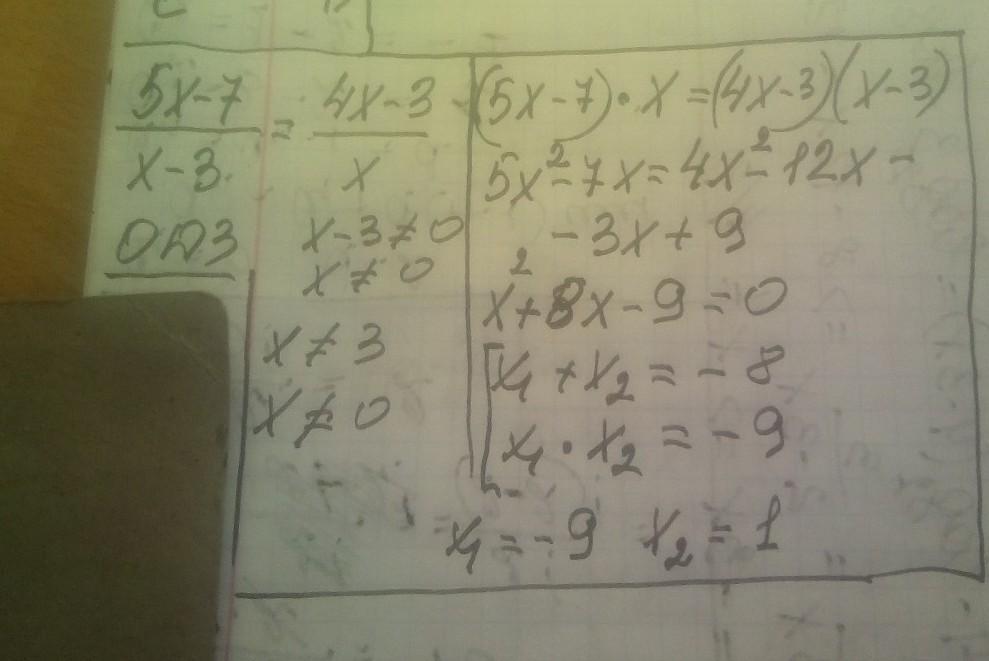 5x-7 / x-3 = 4x-3 / x
ОДЗ
x-3≠0
x≠0
x≠3
x≠0
(5x-7)·x=(4x-3)(x-3)
5x²-7x=4x²-12x-
-3x+9
x²+8x-9=0
x₁+x₂=-8
x₁·x₂=-9
x₁=-9 x₂=1